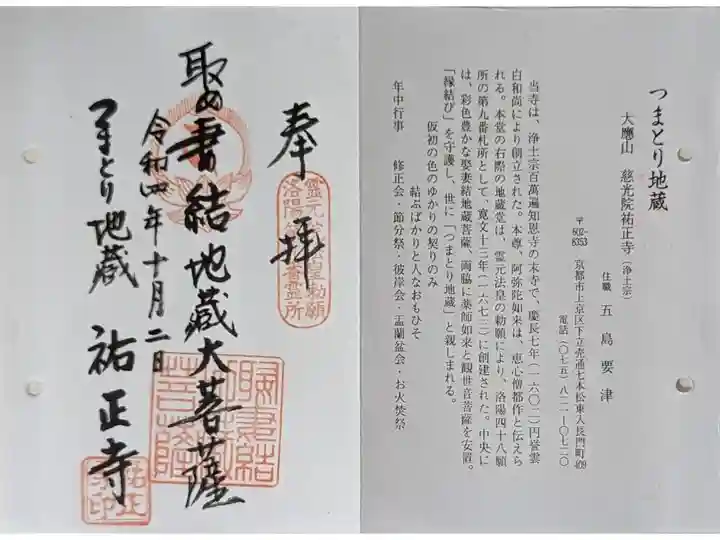 奉拝
取め妻結地蔵大菩薩
令和四年十月二日
つまとり地蔵 祐正寺
つまとり地蔵
大應山 慈光院祐正寺(浄土宗)
住職 五島要津
〒602-8353 京都市上京区下立売通七本松東入長門町409
電話(〇七五)八一一-〇七二〇
当寺は、浄土宗百萬遍知恩寺の末寺で、慶長七年(一六〇二)円誉雲
白和尚により創立された。本尊、阿弥陀如来は、恵心僧都作と伝えら
れる。本堂の右際の地蔵堂は、霊元法皇の勅願により、洛陽四十八願
所の第九番札所として、寛文十三年(一六七三)に創建された。中央に
は、彩色豊かな娶妻結地蔵菩薩、両脇に薬師如来と観世音菩薩を安置。
「縁結び」を守護し、世に「つまとり地蔵」と親しまれる。
仮初の色のゆかりの契りのみ
結ぶばかりと人なおもひそ
年中行事 修正会・節分祭・彼岸会・盂蘭盆会・お火焚祭